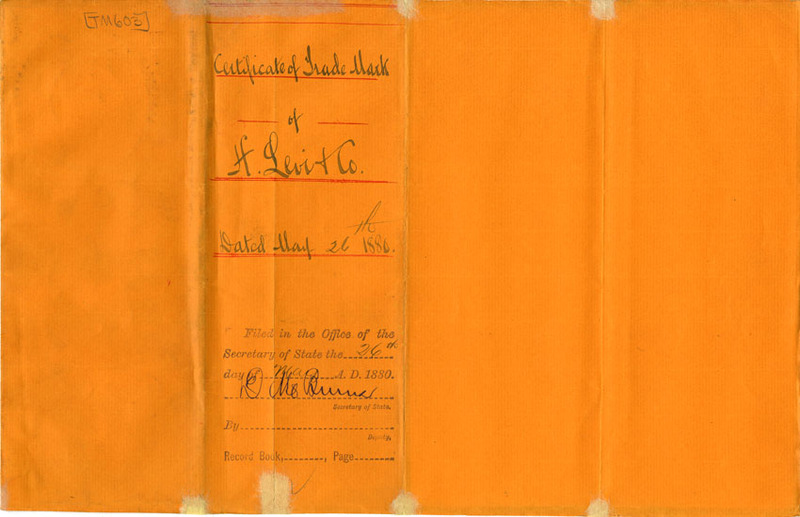 [TM603]
Certificate of Trade Mark
of
H. Levi & Co.
Dated May 26th 1880.
Filed in the Office of the
Secretary of State the 26th
day of May A. D. 1880.
D M Burns
Secretary of State.
By
Deputy.
Record Book, , Page